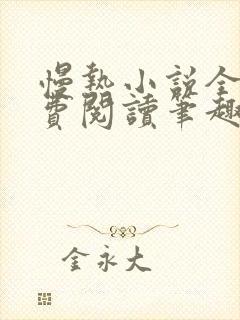 慢熱小說全
費閱讀筆趣
金永大